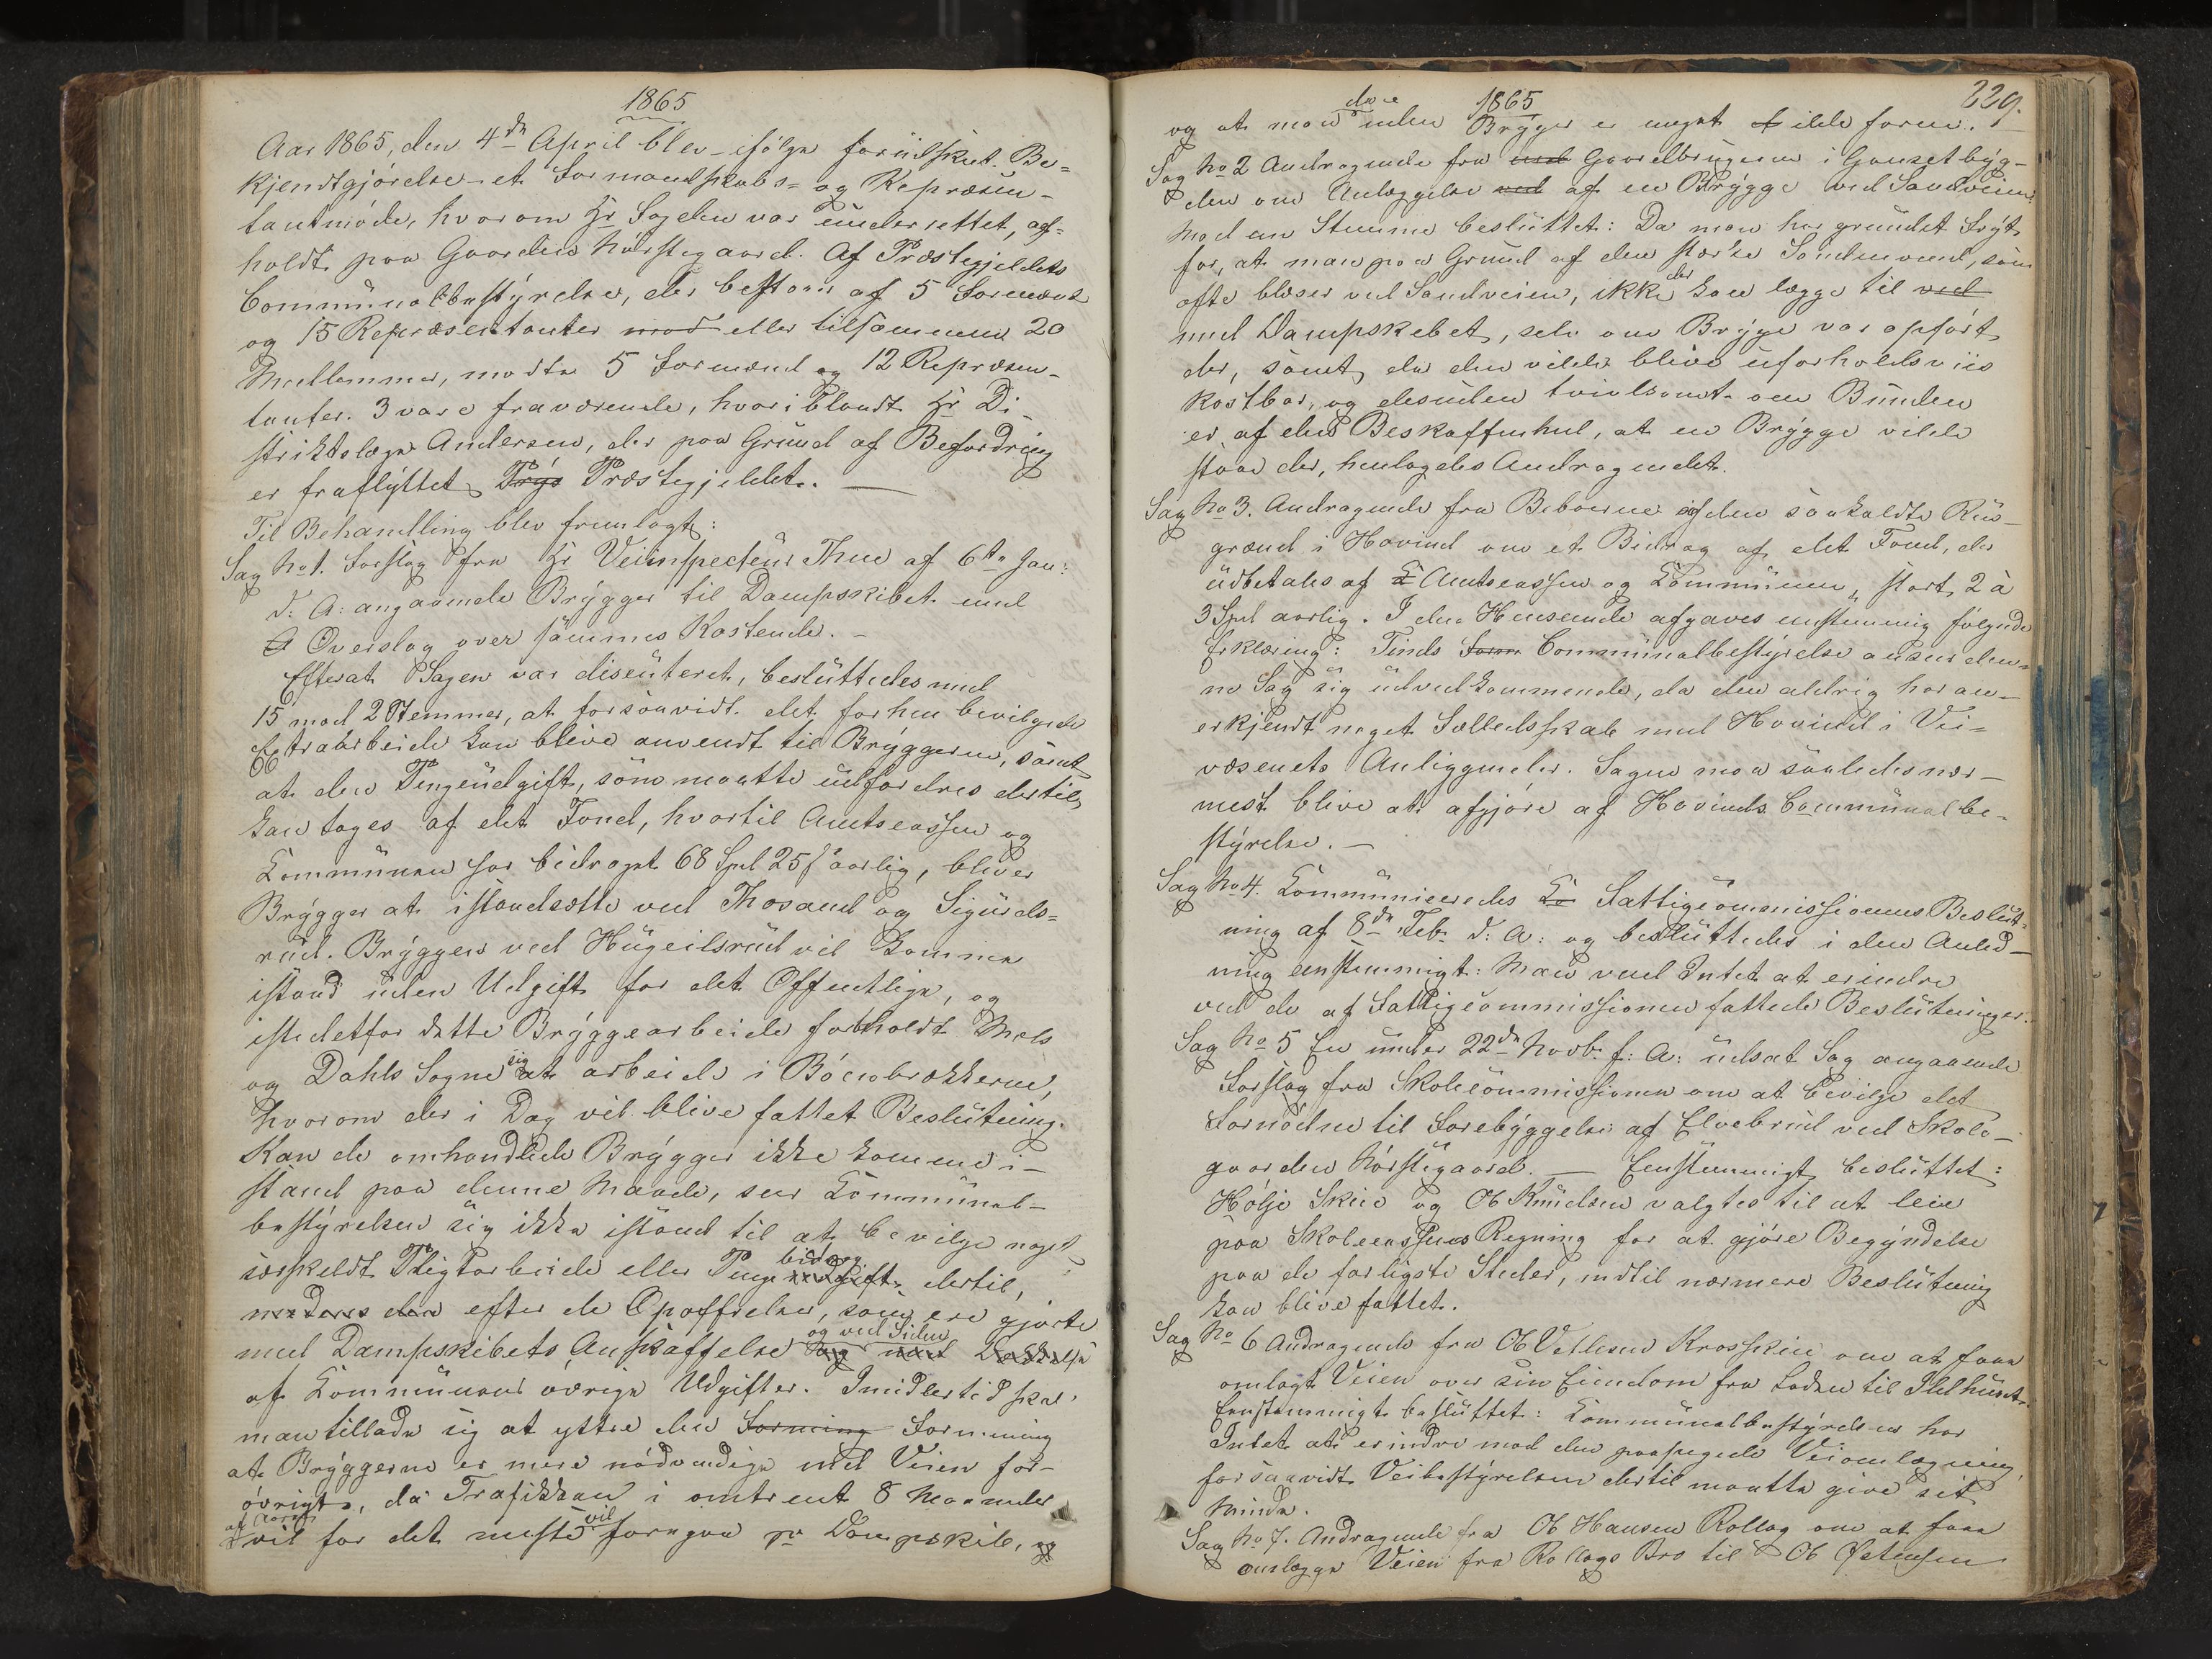 1865
Aar 1865, den 4de April blev ifølge foriilskut. Be-
kjendtgjørelse et Formandskabs- og Repræsen-
tantmøde, hvorom Hr Fogden var underrettet, af-
holdt paa Gaarden Hørstegaard. Af Præstegjeldets
Communalbestyrelse, der bestaar af 5 Formænd
og 15 Repræsentanter mod eller tilsammen 20
Medlemmer, mødte 5 Formænd og 12 Repræsen-
tanter. 3 vare fraværende, hvoriblandt Hr Di-
striktslæge Andersen, der paa Grund af Befordring
er fraflyttet Præstegjeldet. —
Til Behandling blev fremlagt:
Sag No 1. Forslag fra Hr Veiinspecteur Thue af 6te Jan:
d: A: angaaende Brygger til Dampskibet med
Overslag over sammes Kostende. —
Efterat Sagen var discuteret, besluttedes med
15 mod 2 Stemmer, at forsaavidt det forhen bevilgede
Extraarbeide kan blive anvendt til Bryggerne, samt
at den Pengeudgift, som maatte udfordres dertil,
kan tages af det Fond, hvortil Amtscassen og
Kommunen har bidraget 68 Spd 25 s aarlig, bliver
Brygger at istandsætte ved Thosand og Sigurds-
rud. Bryggen ved Hugeilsrud vil komme
istand uden Udgift for det Offentlige, og
istedetfor dette Bryggearbeide forholdt Mels
og Dahls Sogne sig at arbeide i Böenbrækkerne,
hvorom der i Dag vil blive fattet Beslutning.
Kan de omhandlede Brygger ikke komme i-
stand paa denne Maade, seer Kommunal-
bestyrelsen sig ikke istand til at bevilge noget
særskeldt Pligtarbeide eller Penge bidrag dertil,
efter de Opoffrelser, som ere gjorte
med Dampskibets Anskaffelse og ved Siden
af Kommunens øvrige Udgifter. Imidlertid skal
man tillade sig at yttre den Forming Formening
at Bryggerne er mere nødvendige end Veien for-
øvrigt, da Trafikken i omtrent 8 Maaneder
af Aaret vil for det meste vil foregaa pr Dampskib, og
229.
1865
og at man da uden Brygger er meget ilde faren.
Sag No 2 Andragende fra Gaardbrugerne i Gauset byg-
den om Anlæggelse ved af en Brygge ved Sandveien.
Mod en Stemme besluttet: Da man har grundet Frygt
for, at man paa Grund af den stærke Søndenvind, som
ofte blæser ved Sandveien, ikke der kan lægge til ved
med Dampskebet, selv om Brygge var opført
der, samt da den vilde blive uforholdsviis
kostbar, og desuden tvivlsomt om Bunden
er af den Beskaffenhed, at en Brygge vilde
staae der, henlagdes Andragendet.
Sag No 3. Andragende fra Beboerne af den saakaldte Rus-
grænd i Hovind om et Bidrag af det Fond, der
udbetales af Amtscassen og Kommunen, stort 2 à
3 Spd aarlig. I den Henseende afgaves enstemmig følgende
Erklæring: Tinds Form Communalbestyrelse anseer den-
ne Sag sig uvedkommende, da den aldrig har an-
erkjendt noget Fælledsskab med Hovind i Vei-
væsenets Anliggender. Sagen maa saaledes nær-
mest blive at afgjøre af Hovinds Communalbe-
styrelse. —
Sag No 4. Kommuniceredes Fattigcommissionens Beslut-
ning af 8de Feb. d: A: og besluttedes i den Anled-
ning enstemmigt: Man veed Intet at erindre
ved de af Fattigcommissionen fattede Beslutninger.
Sag No 5 En under 22de Novb. f: A: udsat Sag angaaende
Forslag fra Skolecommissionen om at bevilge det
Fornødne til Forebyggelse af Elvebrud ved Skole-
gaarden Hørstegaard. — Eenstemmigt besluttet:
Hølje Skeie og Ob Knudsen valgtes til at leie
paa Skolecassens Regning for at gjøre Begyndelse
paa de farligste Steder, indtil nærmere Beslutning
kan blive fattet.
Sag No 6 Andragende fra Ob Vetlesen Krosskeie om at faae
omlagt Veien over sin Eiendom fra Laden til Ildhuset.
Eenstemmigt besluttet: Kommunalbestyrelsen har
Intet at erindre mod den paapegede Veiomlægning,
forsaavidt Veibestyrelsen dertil maatte give sit
Minde.
Sag No 7. Andragende fra Ob Hansen Rollag om at faae
omlægge Veien fra Rollags Bro til Ob Østensen